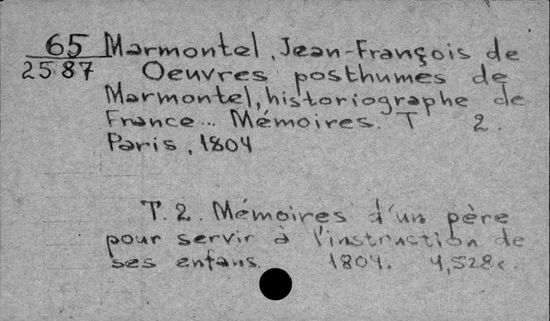 65 Marmontel, Jean-François de
2587 Oeuvres posthumes de
Marmontel, historiographe de
France... Mémoires. T 2.
Paris, 1804
T. 2. Mémoires d'un père
pour servir à l'instruction de
ses enfans. 1804. 4,528c.